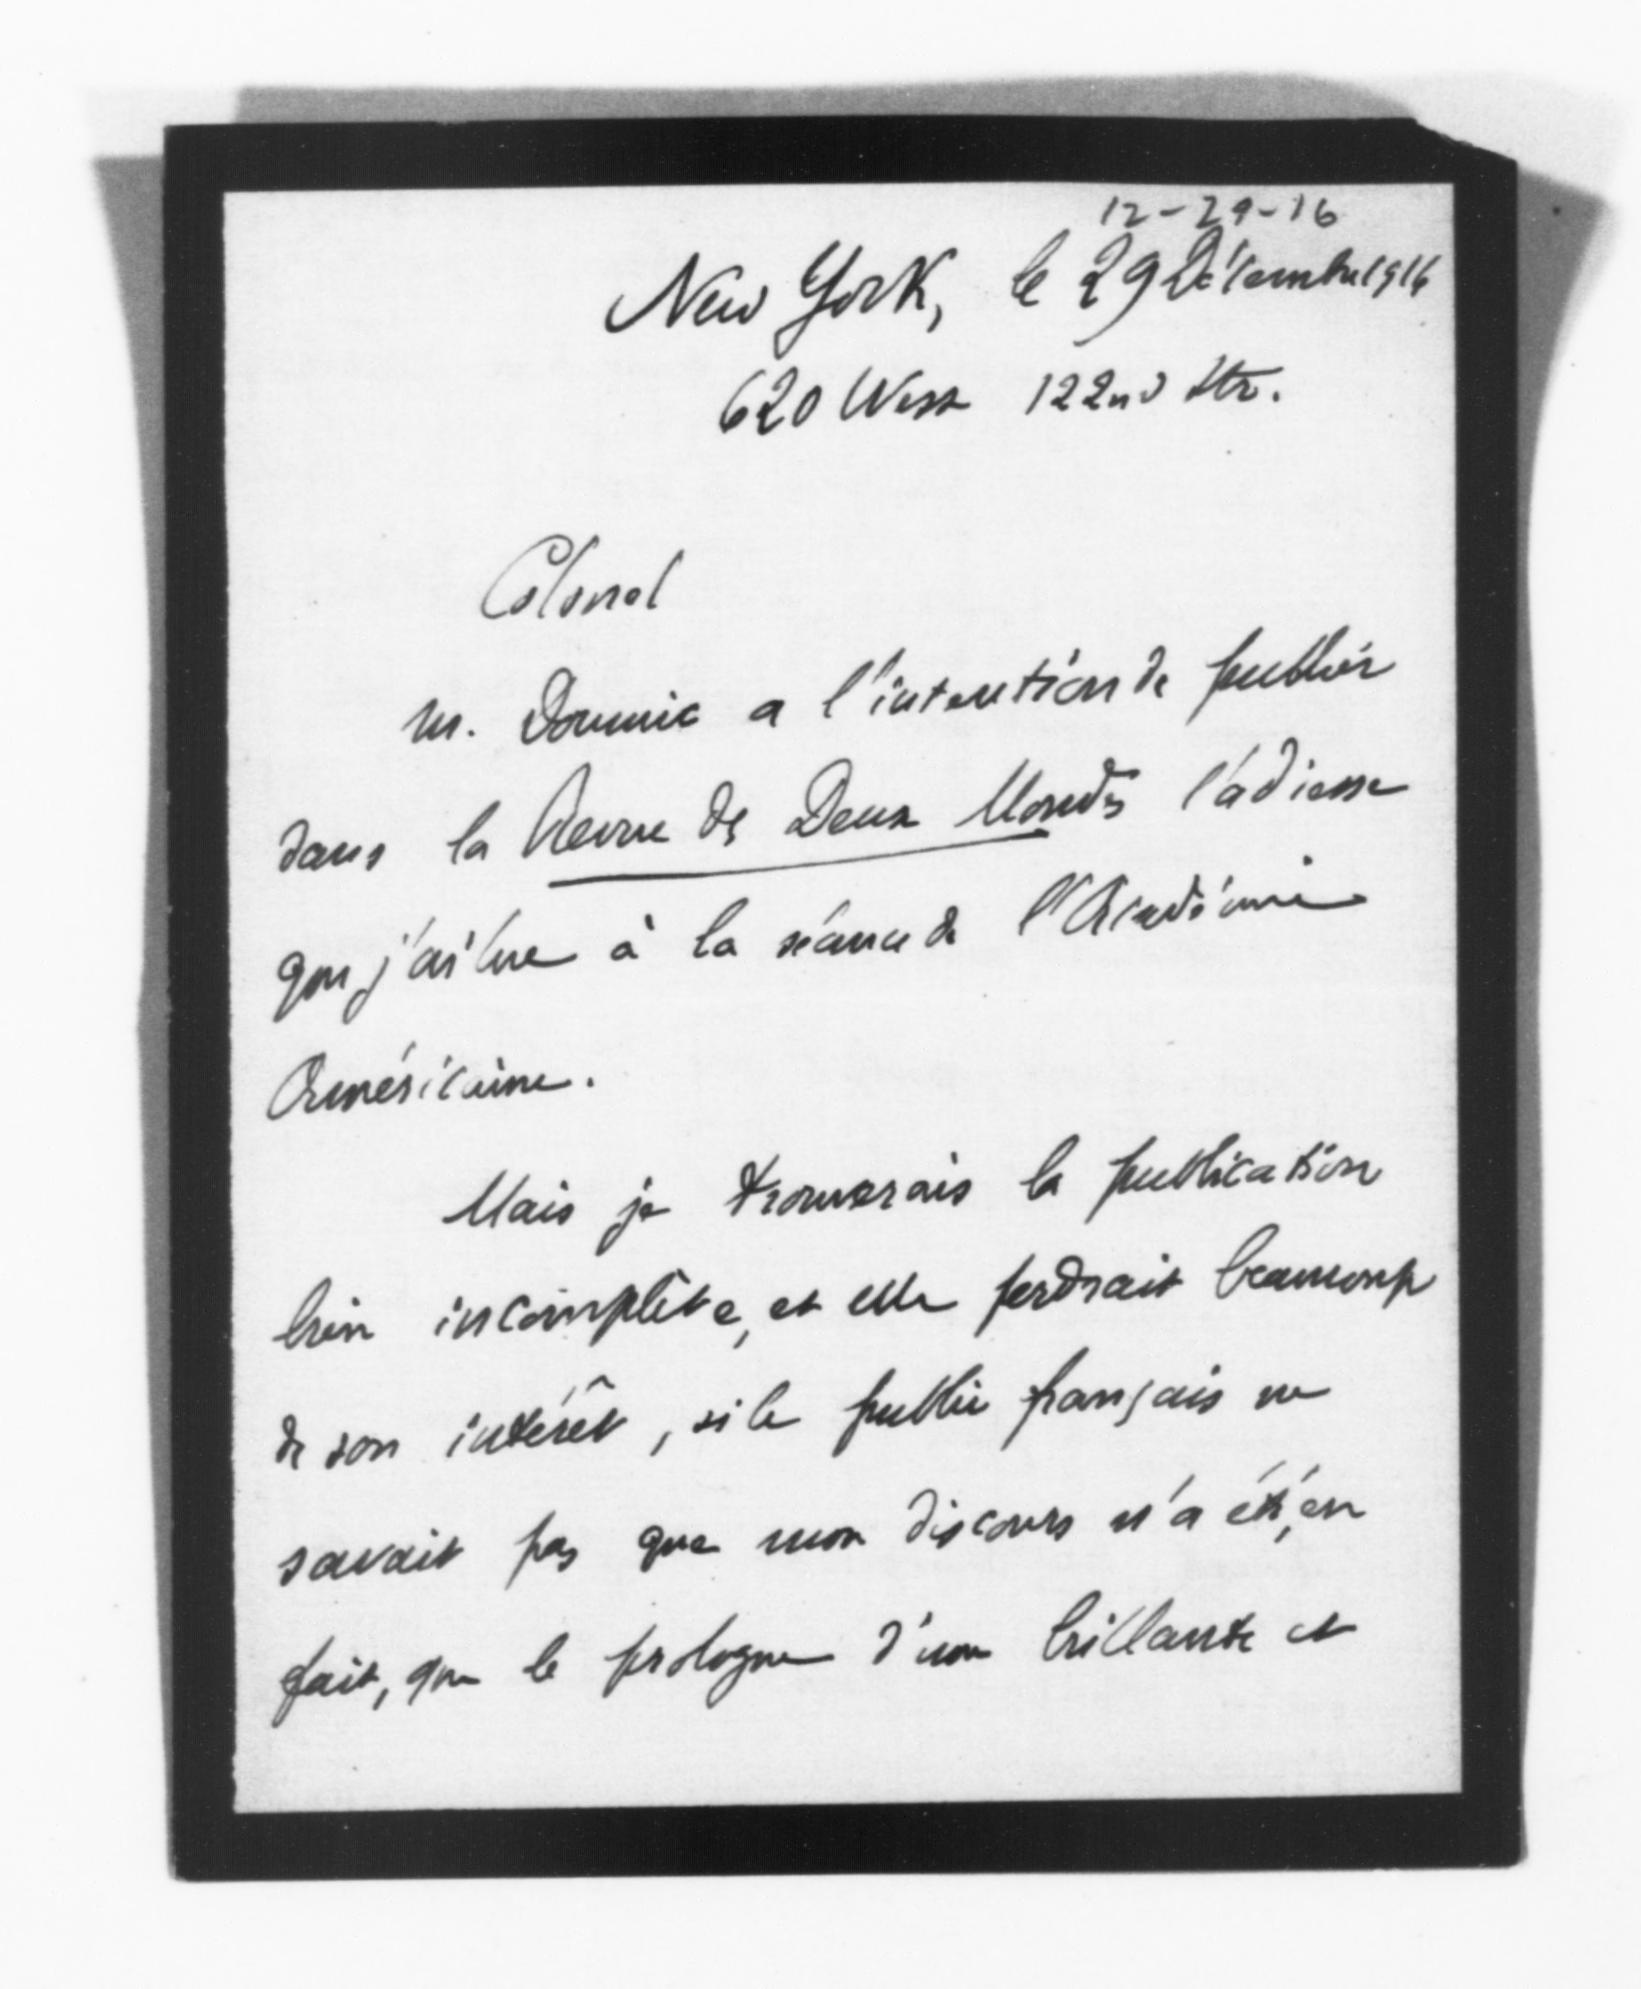 12-29-16
New York, le 29 Décembre 1916
620 West 122nd Str.
Colonel
M. Doumic a l'intention de publier
dans la Revue des Deux Mondes l'adresse
que j'ai lue à la séance de l'Académie
Américaine.
Mais je trouverais la publication
bien incomplète, et elle perdrait beaucoup
de son intérêt, si le public français ne
savait pas que mon discours n'a été, en
fait, que le prologue d'une brillante et